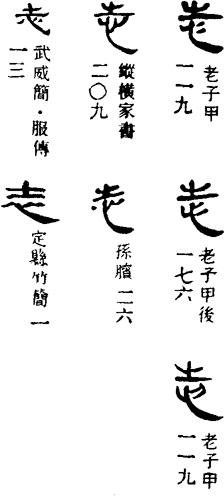 志
老子甲
一一九
志
老子甲後
一七六
志
老子甲
一一九
志
縱橫家書
二〇九
志
孫臏 一二六
志
武威簡·服傳
一三
志
定縣竹簡 一